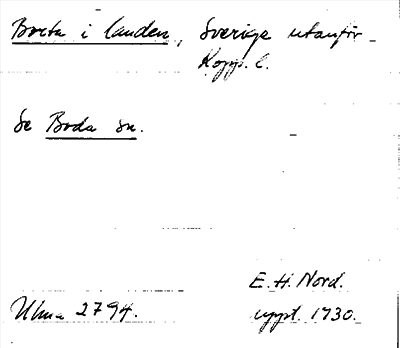 Borta i landen, Sverige utanför
Kopp. l.
Se Boda sn.
E. H. Nord.
Ulma 2794. uppt. 1930.